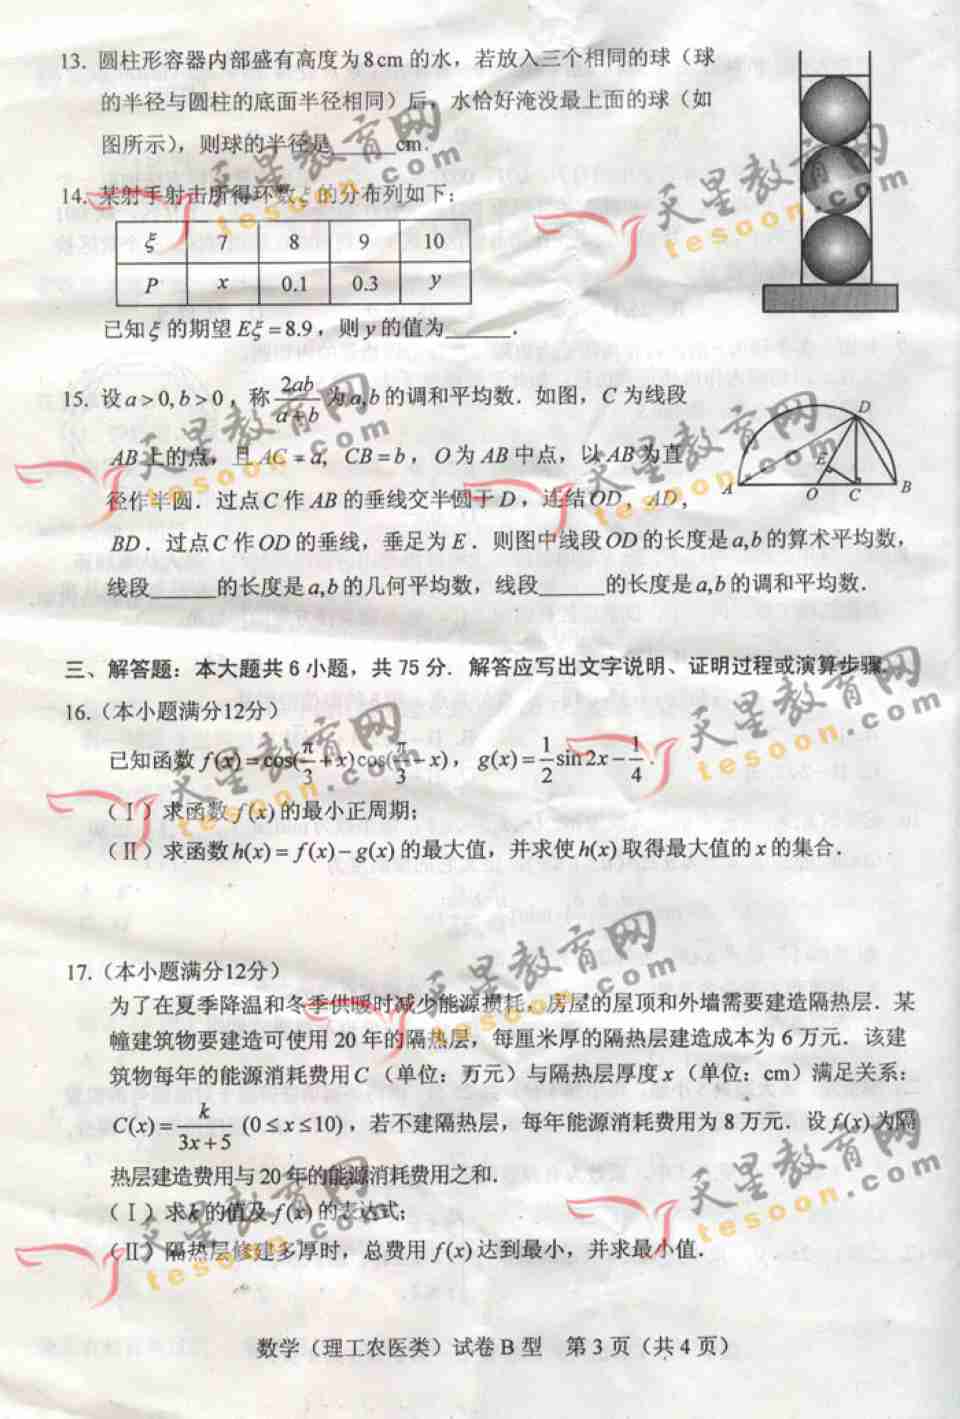 13. 圆柱形容器内部盛有高度为8cm 的水，若放入三个相同的球（球
的半径与圆柱的底面半径相同）后，水恰好淹没最上面的球（如
图所示），则球的半径是______cm.
14. 某射手射击所得环数ξ的分布列如下：
ξ 7 8 9 10
P x 0.1 0.3 y
已知ξ的期望 Eξ=8.9，则 y 的值为______.
15. 设 a>0, b>0，称 2ab/(a+b) 为 a,b 的调和平均数．如图，C 为线段
AB上的点，且 AC = a, CB=b，O为 AB 中点，以 AB 为直
径作半圆．过点C 作 AB 的垂线交半圆于 D，连结OD，AD，
BD．过点C 作OD 的垂线，垂足为 E．则图中线段OD 的长度是a,b的算术平均数，
线段______的长度是a,b的几何平均数，线段______的长度是a,b的调和平均数．
D
E
A O C B
三、解答题：本大题共 6 小题，共 75 分．解答应写出文字说明、证明过程或演算步骤．
16.（本小题满分12分）
已知函数 f(x)=cos(π/3+x)cos(π/3-x)，g(x)=1/2 sin2x-1/4.
（Ⅰ）求函数 f(x)的最小正周期；
（Ⅱ）求函数h(x)=f(x)-g(x) 的最大值，并求使h(x)取得最大值的 x 的集合．
17.（本小题满分12分）
为了在夏季降温和冬季供暖时减少能源损耗，房屋的屋顶和外墙需要建造隔热层．某
幢建筑物要建造可使用 20 年的隔热层，每厘米厚的隔热层建造成本为 6 万元．该建
筑物每年的能源消耗费用C （单位：万元）与隔热层厚度 x （单位：cm）满足关系：
C(x)=k/(3x+5) (0≤x≤10)，若不建隔热层，每年能源消耗费用为 8 万元．设 f(x)为隔
热层建造费用与 20 年的能源消耗费用之和.
（Ⅰ）求k 的值及 f(x) 的表达式；
（Ⅱ）隔热层修建多厚时，总费用 f(x)达到最小，并求最小值．
数学（理工农医类）试卷 B 型 第 3 页（共 4 页）
天星教育网
tesoon.com
天星教育网
tesoon.com
天星教育网
tesoon.com
天星教育网
tesoon.com
天星教育网
tesoon.com
天星教育网
tesoon.com
天星教育网
tesoon.com
天星教育网
tesoon.com
天星教育网
tesoon.com